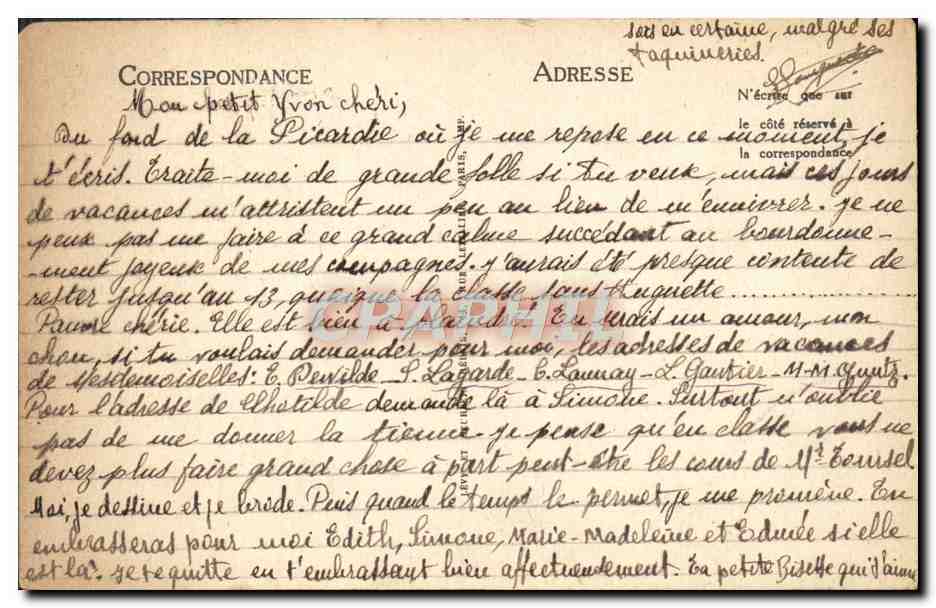 sois en certaine, malgré ses
taquineries.
CORRESPONDANCE
ADRESSE
Mon petit Yvon chéri,
N'écrire que sur
le côté réservé à
la correspondance
Du fond de la Picardie où je me repose en ce moment, je
t'écris. Traite-moi de grande folle si tu veux, mais ces jours
de vacances m'attristent un peu au lieu de m'enivrer. je ne
peux pas me faire à ce grand calme succédant au bourdonne-
-ment joyeux de mes compagnes. j'aurais été presque contente de
rester jusqu'au 13, quoique la classe sans Huguette..............
Pauvre chérie. Elle est bien à plaindre. Tu serais un amour, mon
chou, si tu voulais demander pour moi, les adresses de vacances
de Mesdemoiselles: E. Dewilde - S. Lagarde - E. Launay - L. Gautier - M-M.
Pour l'adresse de Clhotilde demande là à Simone. Surtout n'oublie
pas de me donner la tienne. je pense qu'en classe vous ne
devez plus faire grand chose à part peut-être les cours de Mr Toursel
Moi, je dessine et je brode. Puis quand le temps le permet, je me promène. Tu
embrasseras pour moi Edith, Simone, Marie-Madeleine et Edmée si elle
est là. je te quitte en t'embrassant bien affectueusement. Ta petite Bisette qui t'aime
CARPHILA